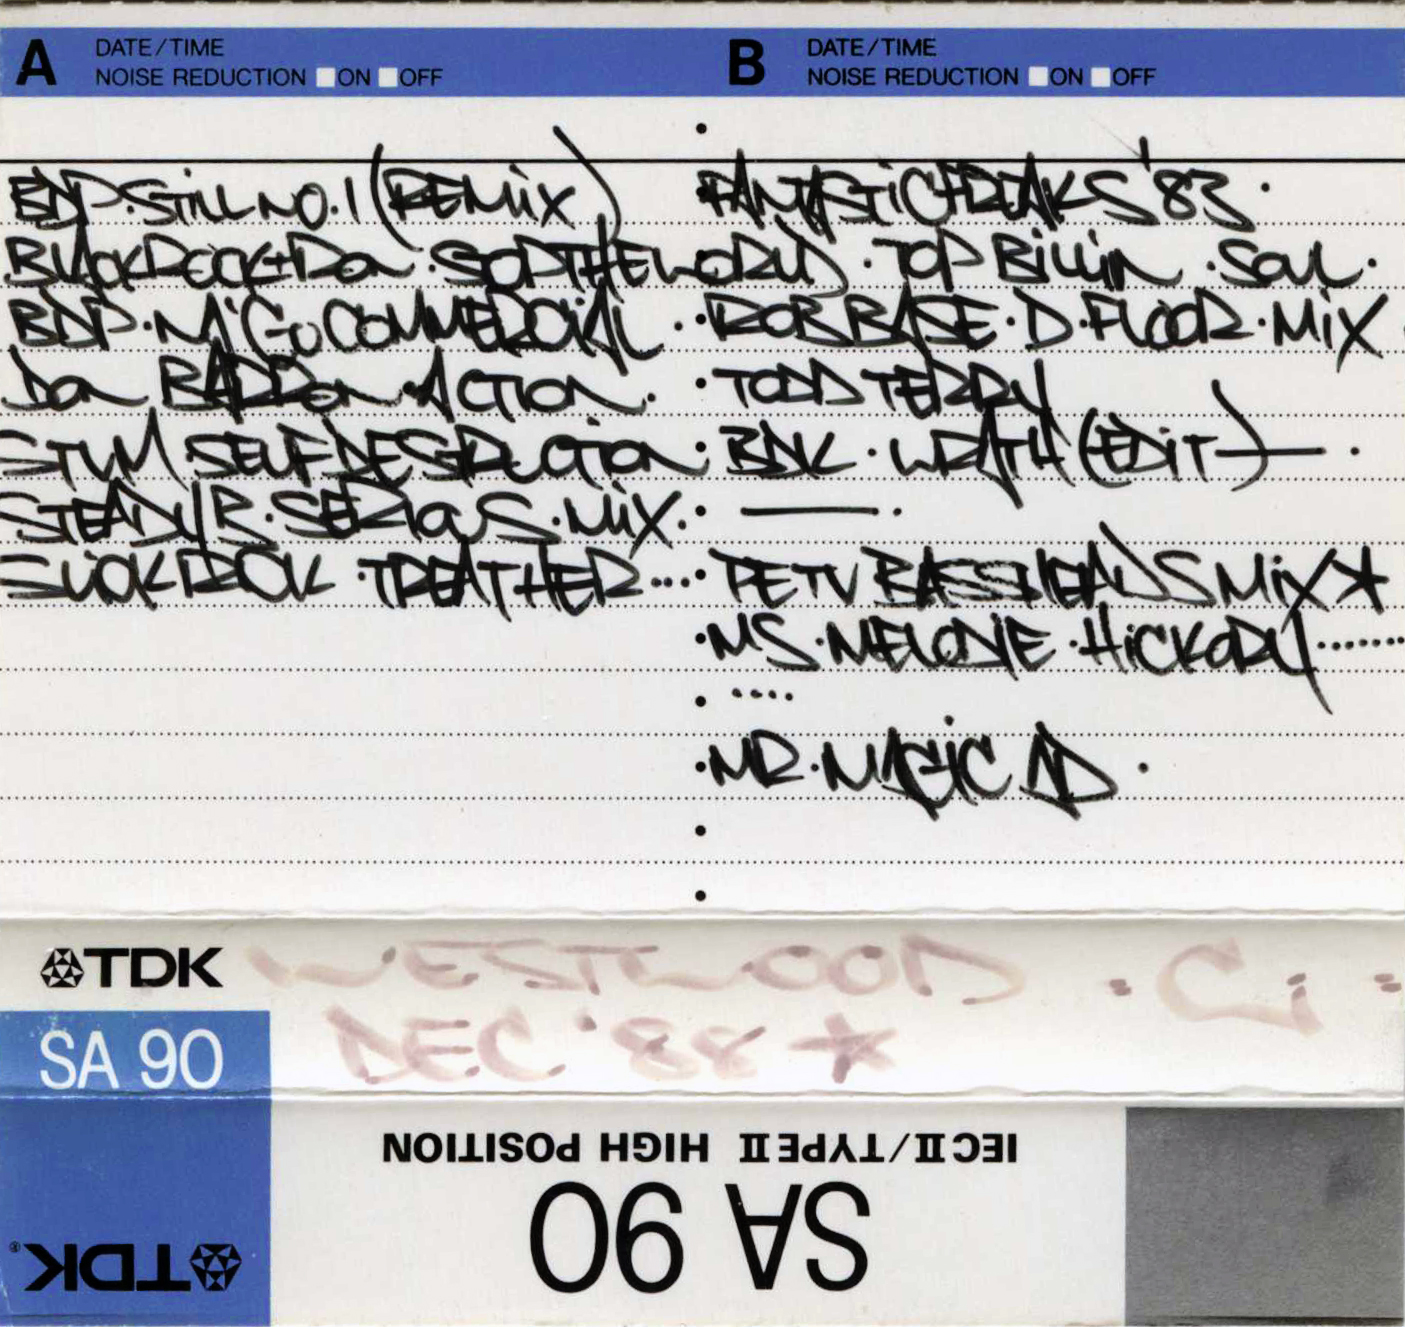 A DATE/TIME
NOISE REDUCTION ON OFF
B DATE/TIME
NOISE REDUCTION ON OFF
BDP. STILL NO. 1 (REMIX)
BLACK ROCK + RON · STOP THE WORLD ·
BDP · MY COMMERCIAL ·
RON
STUM SELF DESTRUCTION
STEADY B · SERIOUS · MIX ·
TREAT HER...
FANTASTIC FREAKS '83 ·
TOP BILLIN · SOUL ·
· ROB BASE · D · FLOOR · MIX
· TODD TERRY
· BDK · WRATH (EDIT) — ·
· — ·
BASSHEADS MIX ★
· MS · MELODIE · HICKORY ........
· ....
· MR · MAGIC AD ·
TDK WESTWOOD · C ·
SA 90 DEC '88 ★
IEC II/TYPE II HIGH POSITION
SA 90
TDK